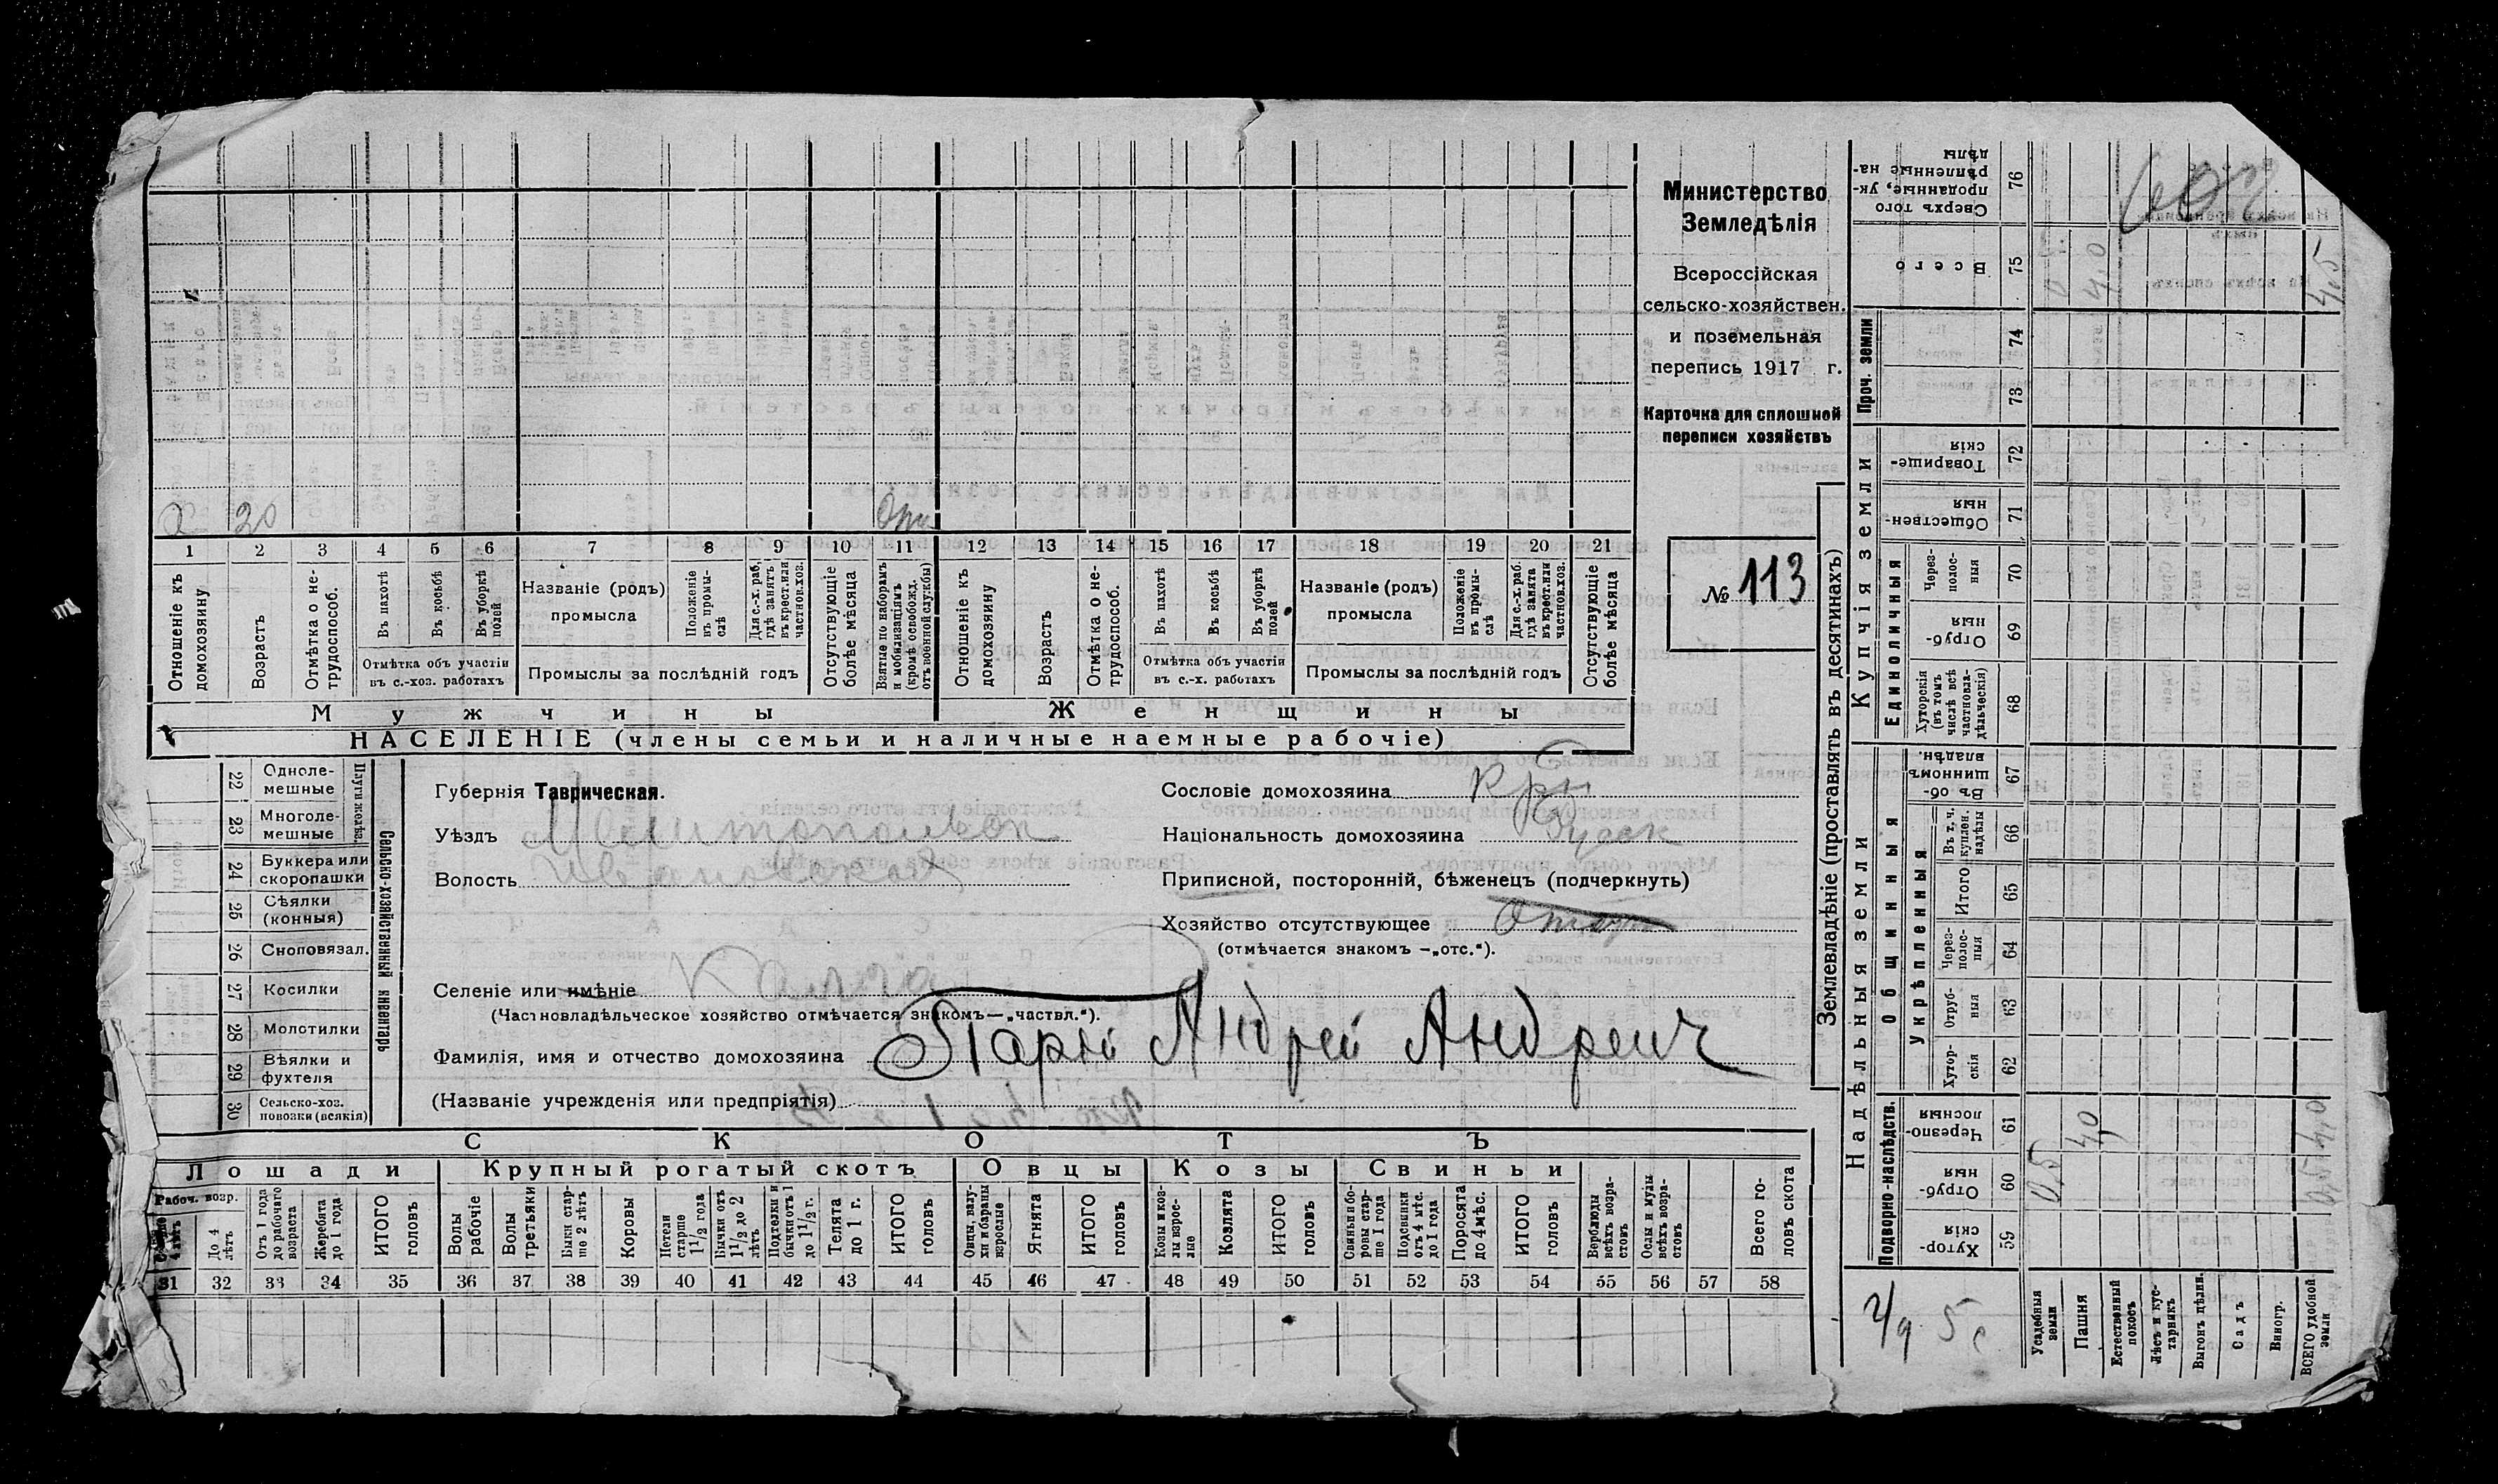 Министерство
Земледѣлія
Всероссійская
сельско-хозяйствен.
и поземельная
перепись 1917 г.
Карточка для сплошной
переписи хозяйствъ
№ 113
Х 20
1 2 3 4 5 6 7 8 9 10 11 12 13 14 15 16 17 18 19 20 21
Отношеніе къ домохозяину
Возрастъ
Отмѣтка о нетрудоспособ.
Въ пахотѣ
Въ косьбѣ
Въ уборкѣ полей
Отмѣтка объ участіи
въ с.-хоз. работахъ
Названіе (родъ)
промысла
Положеніе въ промыслѣ
Для с.-х. раб. гдѣ занятъ въ крест. или частнов. хоз.
Промыслы за послѣдній годъ
Отсутствующіе болѣе мѣсяца
Взятые по наборамъ и мобилизаціямъ (кромѣ освобожд. отъ военной службы)
Отношеніе къ домохозяину
Возрастъ
Отмѣтка о нетрудоспособ.
Въ пахотѣ
Въ косьбѣ
Въ уборкѣ полей
Отмѣтка объ участіи
въ с.-х. работахъ
Названіе (родъ)
промысла
Положеніе въ промыслѣ
Для с.-х. раб. гдѣ занята въ крест. или частнов. хоз.
Промыслы за послѣдній годъ
Отсутствующіе болѣе мѣсяца
Мужчины Женщины
НАСЕЛЕНІЕ (члены семьи и наличные наемные рабочіе)
22 Одноле-
мешные
23 Многоле-
мешные
Плуги желѣз.
24 Буккера или
скоропашки
25 Сѣялки
(конныя)
26 Сноповязал.
27 Косилки
28 Молотилки
29 Вѣялки и
фухтеля
30 Сельско-хоз.
повозки (всякія)
Сельско-хозяйственный инвентарь
Губернія Таврическая.
Уѣздъ Мелитопольск
Волость Ивановская
Сословіе домохозяина Кр
Національность домохозяина
Приписной, посторонній, бѣженецъ (подчеркнуть)
Хозяйство отсутствующее
(отмѣчается знакомъ —„отс.“).
Селеніе или имѣніе Калга
(Частновладѣльческое хозяйство отмѣчается знакомъ—„частвл.“).
Фамилія, имя и отчество домохозяина Парій Андрей Андреич
(Названіе учрежденія или предпріятія)
СКОТЪ
Лошади Крупный рогатый скотъ Овцы Козы Свиньи
Рабоч. возр.
До 4 лѣтъ
Отъ 1 года до рабочаго возраста
Жеребята до 1 года
ИТОГО головъ
Волы рабочіе
Волы третьяки
Быки старше 2 лѣтъ
Коровы
Нетели старше 1½ года
Бычки отъ 1½ до 2 лѣтъ
Подтелки и бычки отъ 1 до 1½ г.
Телята до 1 г.
ИТОГО головъ
Овцы, валухи и бараны взрослые
Ягнята
ИТОГО головъ
Козы и козлы взрослые
Козлята
ИТОГО головъ
Свиньи и боровы старше 1 года
Подсвинки отъ 4 мѣс. до 1 года
Поросята до 4 мѣс.
ИТОГО головъ
Верблюды всѣхъ возрастовъ
Ослы и мулы всѣхъ возрастовъ
Всего головъ скота
31 32 33 34 35 36 37 38 39 40 41 42 43 44 45 46 47 48 49 50 51 52 53 54 55 56 57 58
Землевладѣніе (проставлять въ десятинахъ)
Надѣльныя земли
Купчія земли
Проч. земли
Подворно-наслѣдств.
Общинныя
Укрѣпленныя
Единоличныя
Хуторскія 59
Отрубныя 60
Черезполосныя 61
Хуторскія 62
Отрубныя 63
Черезполосныя 64
Итого 65
Въ т. ч. куплен. надѣлы 66
Въ общинномъ владѣн. 67
Хуторскія (въ томъ числѣ всѣ частновладѣльческія) 68
Отрубныя 69
Черезполосныя 70
Общественныя 71
Товарищескія 72
73
74
Всего 75
Сверхъ того проданные, укрѣпленные надѣлы 76
Усадебныя земли
Пашня
Естественный покосъ
Лѣсъ и кустарникъ
Выгонъ цѣлин.
Садъ
Виногр.
ВСЕГО удобной земли
0,5
4,0
4,0
4,5